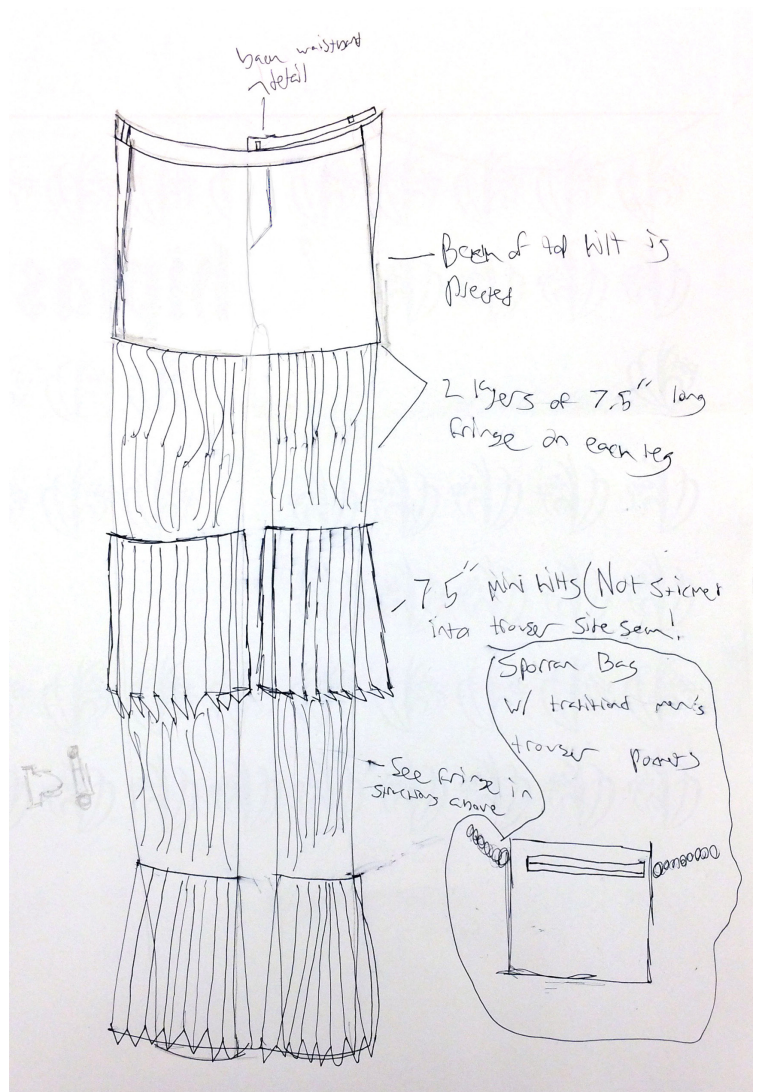 back waistband
detail
Back of top kilt is
pleated
2 layers of 7.5" long
fringe on each leg
7.5" mini kilts (Not stitched
into trouser side seam!
Sporran Bag
w/ traditional men's
trouser pockets
- See fringe in
structions above